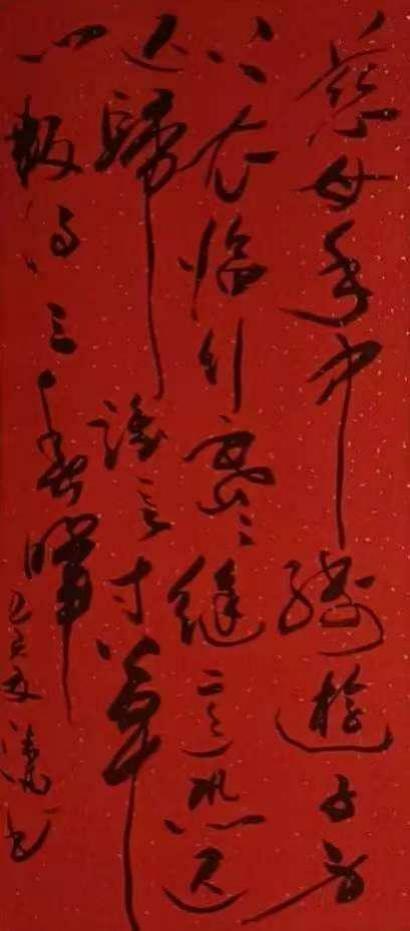 慈母手中綫遊子身
上衣临行密密缝意恐迟
迟歸誰言寸草
心報得三春暉
己亥